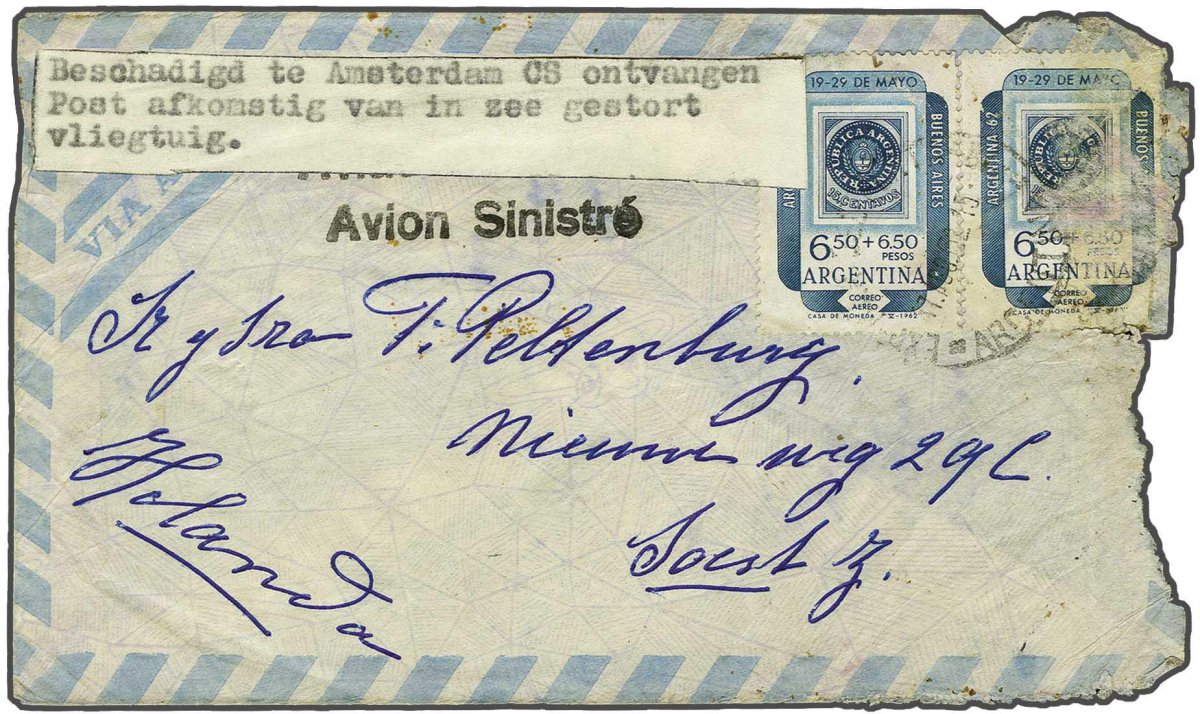 Beschadigd te Amsterdam CS ontvangen
Post afkomstig van in zee gestort
vliegtuig.
Avion Sinistré
VIA A
19-29 DE MAYO
BUENOS AIRES
REPUBLICA ARGENTINA
15 CENTAVOS
6.50 + 6.50
PESOS
ARGENTINA
CORREO
AEREO
CASA DE MONEDA V-1962
19-29 DE MAYO
ARGENTINA 62
BUENOS AIRES
REPUBLICA ARGENTINA
6.50 + 6.50
PESOS
ARGENTINA
CORREO
AEREO
CASA DE MONEDA V-1962
T. Peltenburg.
Nieuwe weg 29C.
Soest Z.
Holanda